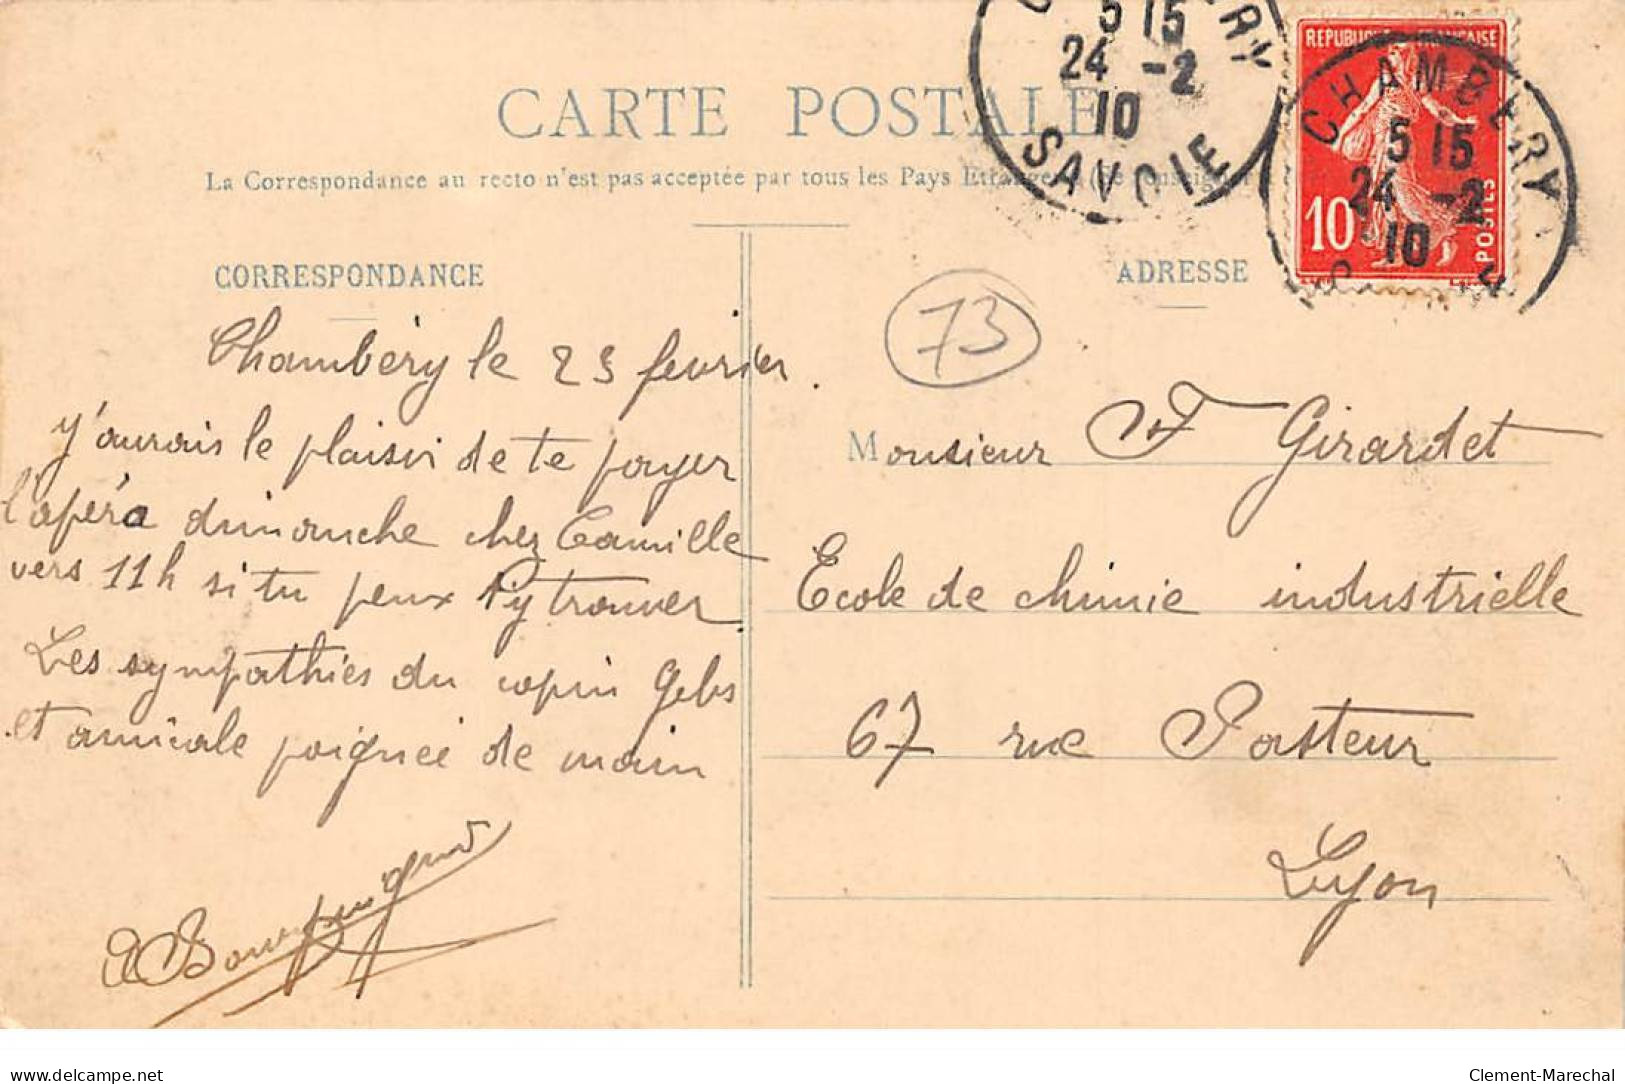 CARTE POSTALE
La Correspondance au recto n'est pas acceptée par tous les Pays
CORRESPONDANCE
ADRESSE
RÉPUBLIQUE FRANÇAISE
10
POSTES
5 15
24 -2
10
SAVOIE
CHAMBERY
5 15
24 -2
10
73
Chambéry le 23 février.
j'aurais le plaisir de te payer
l'apéro dimanche chez Camille
vers 11h si tu peux t'y trouver
Les sympathies du copin Gebs
et amicale poignée de main
Monsieur F Girardet
Ecole de chimie industrielle
67 rue Pasteur
Lyon
delcampe.net
Clement-Marechal